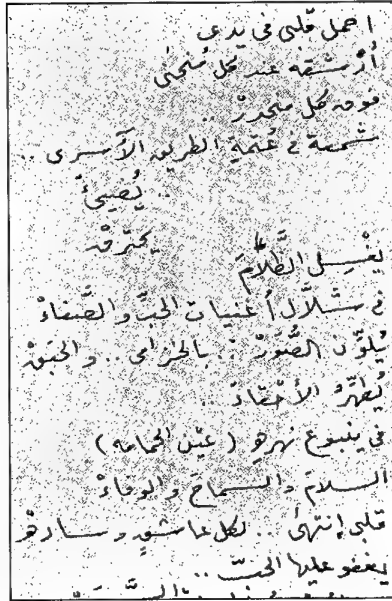 احمل قلبي في يدي
أرشقه عند كل مُنحنى
فوق كل منحدرْ ..
شمعة في عُتمةِ الطريق الآسرى ..
يُضيئُ ..
يحترقْ
يغسل الظَّلامَ
في شلاّل أغنيات الحبَّ والصَّفاءْ
يُلوّن الصُّورْ .. بالخزامى .. والحبقْ
يُطهّرُ الأحقادَ ..
في ينبوع نهرهِ ( عين الحمامه )
السلامَ والسماحَ والوفاءْ
قلبي إنتهى .. لكل عاشقٍ وسادهْ
يغفو عليها الحبّ ..